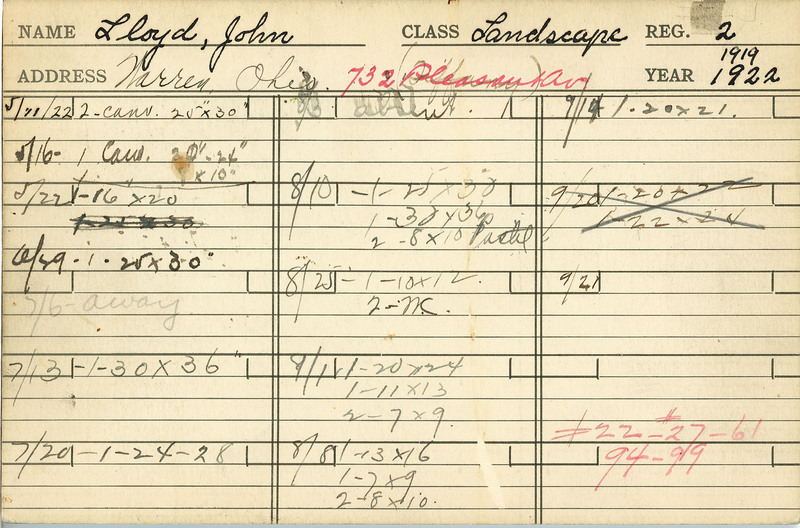 NAME Lloyd, John CLASS Landscape REG. 2
ADDRESS Warren, Ohio. 732 Pleasant Av YEAR 1919 1922
5/11/22 2-canv. 25"x30"
5/16- 1 Canv. 20"-24"
x10"
5/22 1-16"x20
1-25x30
6/29-1-25x30"
7/6-away
7/13-1-30x36"
7/20-1-24-28
8/10-1-25x30
1-30x36
2-8x10 Pastel
8/25-1-10x12.
2-NC.
1-20x24
1-11x13
2-7x9.
8/8 1-13x16
1-7x9
2-8x10.
9/14 1-20x21.
9/20 1-20x22
1-22x24
9/21
#22-#27-61
94-99